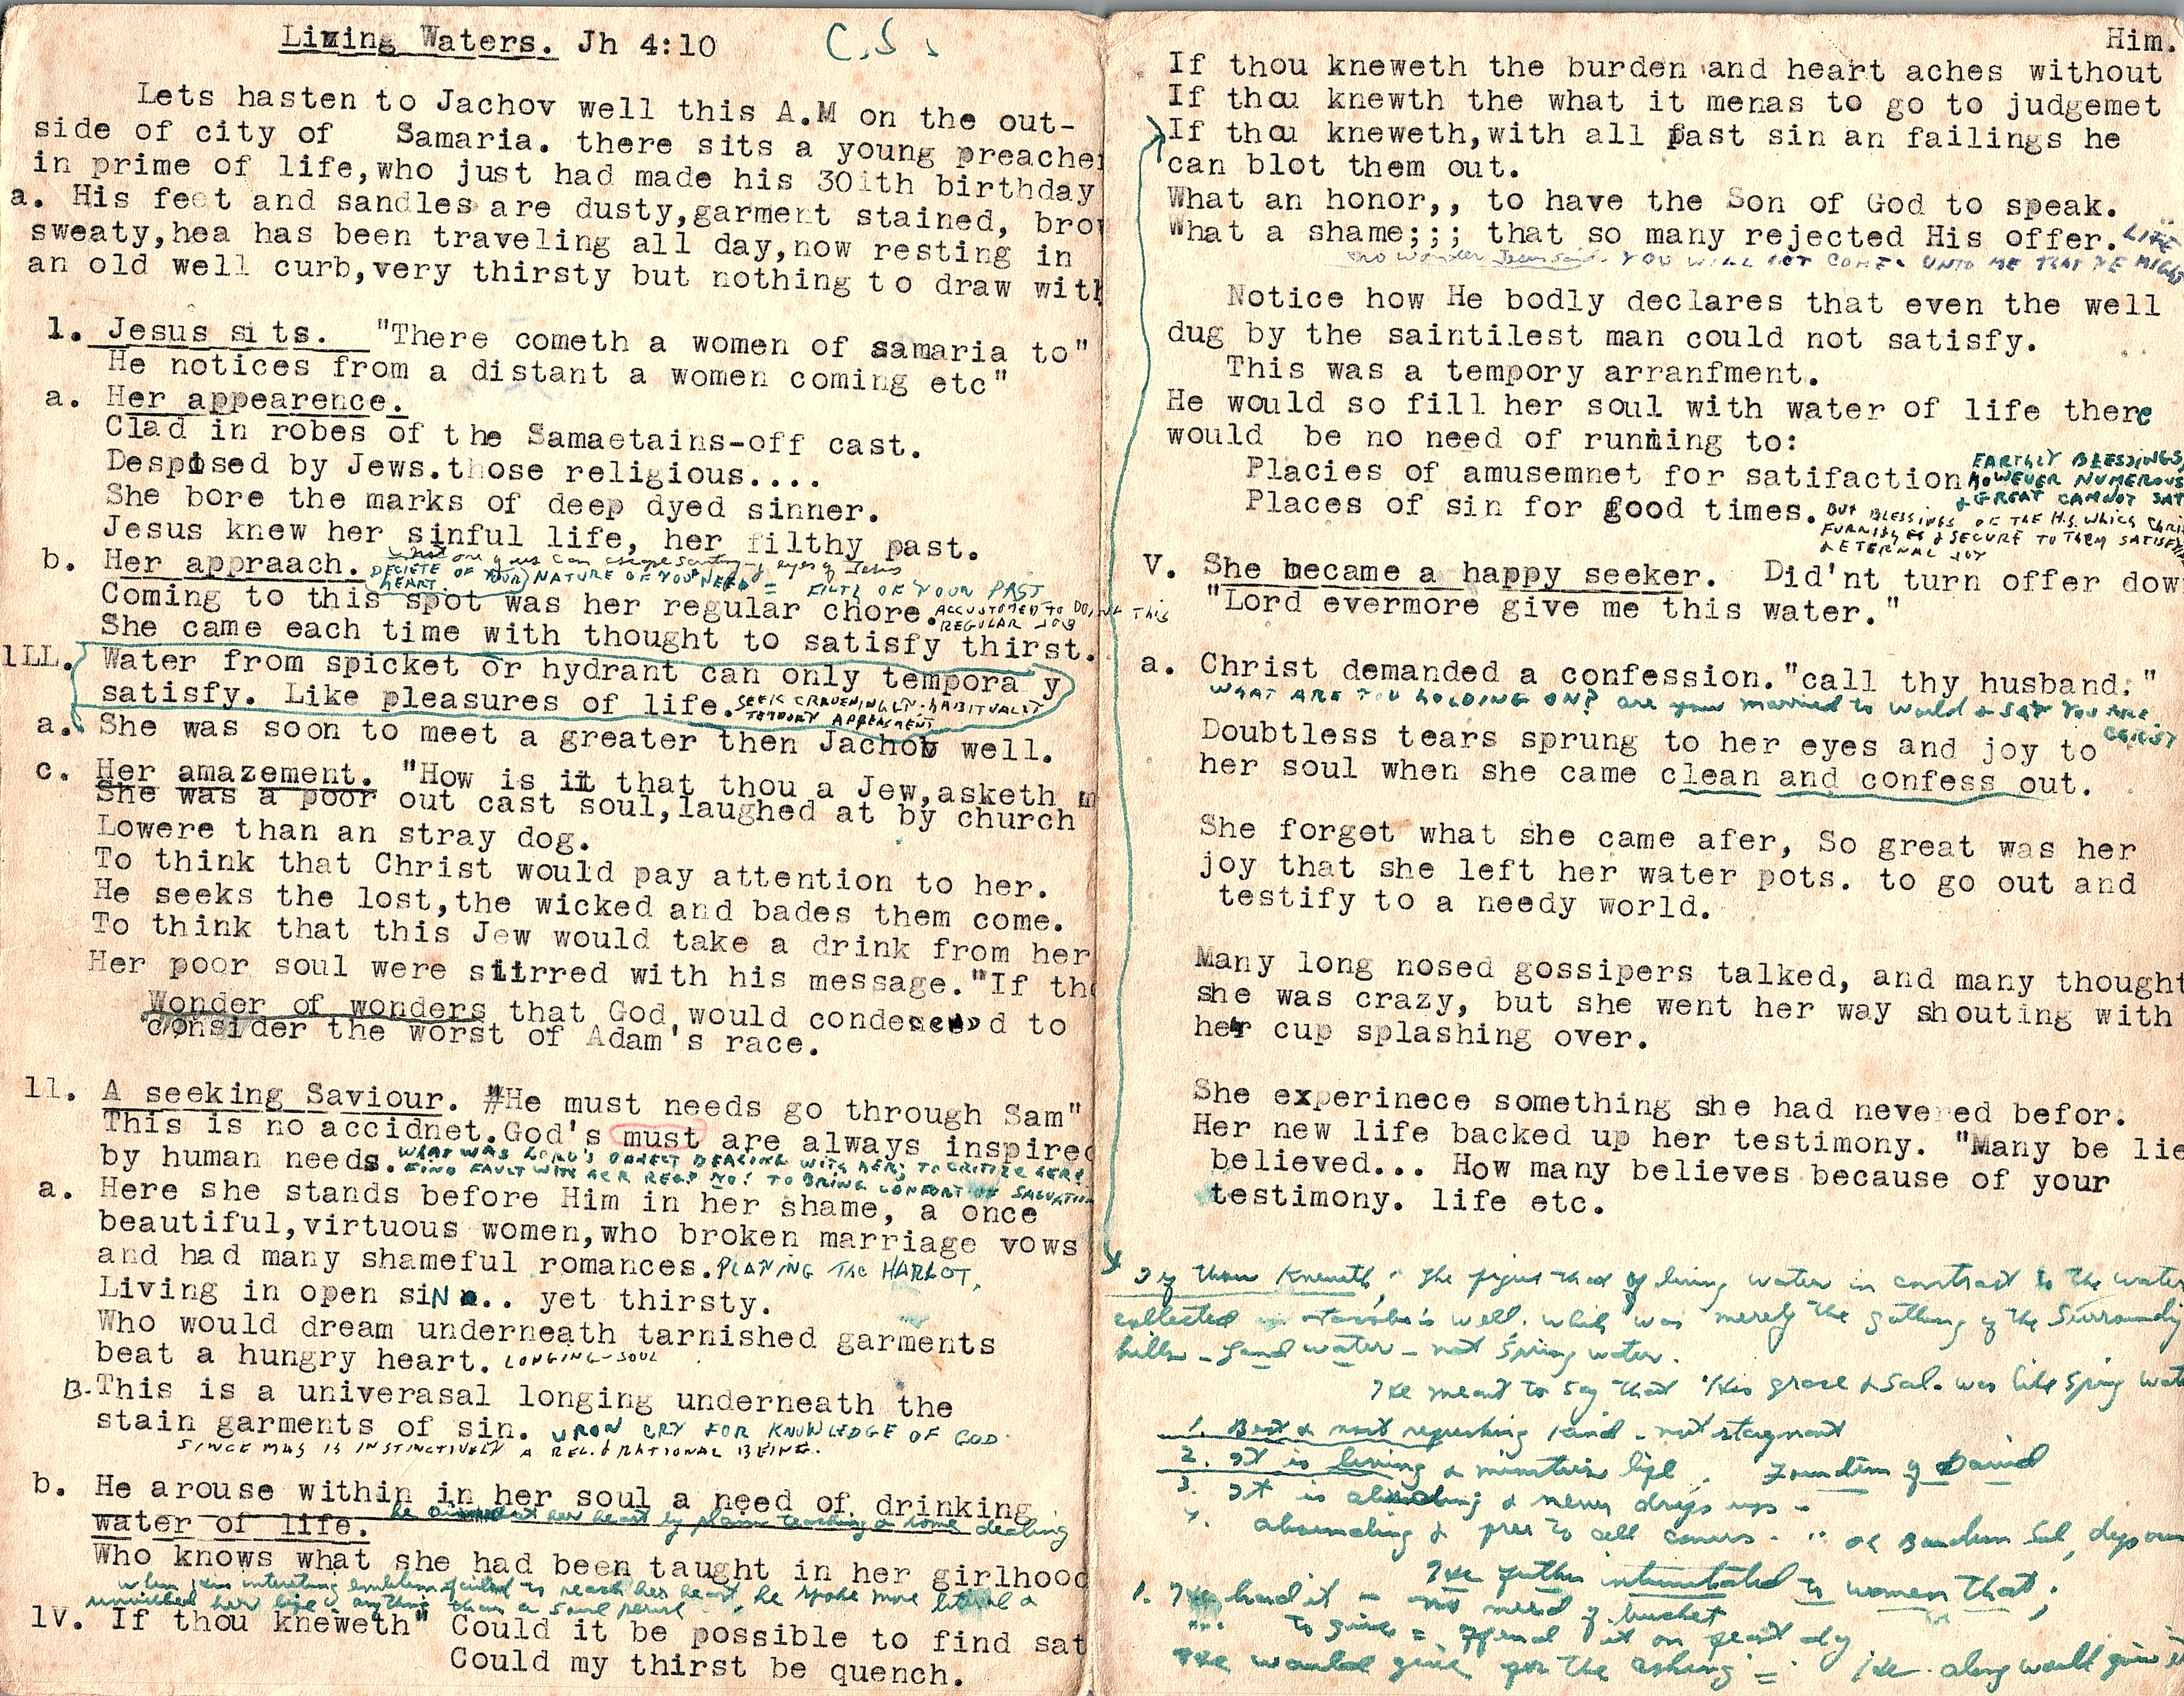 Living Waters. Jh 4:10 C.S.
Lets hasten to Jachov well this A.M on the out-
side of city of Samaria. there sits a young preacher
in prime of life,who just had made his 30ith birthday
a. His feet and sandles are dusty,garment stained, brow
sweaty,hea has been traveling all day,now resting in
an old well curb,very thirsty but nothing to draw with
1. Jesus sits. "There cometh a women of samaria to"
He notices from a distant a women coming etc"
a. Her appearence.
Clad in robes of the Samaetains-off cast.
Despised by Jews.those religious....
She bore the marks of deep dyed sinner.
Jesus knew her sinful life, her filthy past.
not one of us can escape eyes of Jesus
b. Her appraach. DECIETE OF YOUR HEART. NATURE OF YOUR NEED = FILTH OF YOUR PAST
Coming to this spot was her regular chore. ACCUSTOMED TO DOING THIS
REGULAR JOB
She came each time with thought to satisfy thirst.
1LL. Water from spicket or hydrant can only tempora y
satisfy. Like pleasures of life. SEEK HABITUALLY
TEMPORY APPEASMENT
a. She was soon to meet a greater then Jachob well.
c. Her amazement. "How is iit that thou a Jew,asketh m
She was a poor out cast soul,laughed at by church"
Lowere than an stray dog.
To think that Christ would pay attention to her.
He seeks the lost,the wicked and bades them come.
To think that this Jew would take a drink from her
Her poor soul were stirred with his message."If tho
Wonder of wonders that God,would condescend to
consider the worst of Adam's race.
11. A seeking Saviour. "He must needs go through Sam"
This is no accidnet.God's must are always inspired
by human needs. WHAT WAS LORD'S OBJECT DEALING WITH HER; TO CRITIZE HER?
FIND FAULT WITH HER REL? NO! TO BRING COMFORT OF SALVATION
a. Here she stands before Him in her shame, a once
beautiful,virtuous women,who broken marriage vows
and had many shameful romances. PLAYING THE HARLOT.
Living in open siN .. yet thirsty.
Who would dream underneath tarnished garments
beat a hungry heart. LONGING-SOUL
B. This is a univerasal longing underneath the
stain garments of sin. CRY FOR KNOWLEDGE OF GOD
SINCE MAN IS INSTINCTIVELY A REL. & RATIONAL BEING.
b. He arouse within in her soul a need of drinking
water of life. he her heart by plain teaching & some dealing
Who knows what she had been taught in her girlhood
When this interesting emblem failed to reach her heart, he spoke more literal
1V. If thou kneweth" Could it be possible to find sat
Could my thirst be quench.
Him.
If thou kneweth the burden and heart aches without
If thou knewth the what it menas to go to judgemet
If thou kneweth,with all past sin an failings he
can blot them out.
What an honor,, to have the Son of God to speak.
What a shame;;; that so many rejected His offer. LIFE
no wonder Jesus said. YOU WILL NOT COME. UNTO ME THAT YE MIGHT
Notice how He bodly declares that even the well
dug by the saintilest man could not satisfy.
This was a tempory arranfment.
He would so fill her soul with water of life there
would be no need of running to:
Placies of amusemnet for satifaction EARTHLY BLESSINGS
HOWEVER NUMEROUS
& GREAT CANNOT SAT
Places of sin for good times. BUT BLESSINGS OF THE H.S. WHICH CHRI
FURNISHES & SECURE TO THEM SATISFY
& ETERNAL JOY
V. She became a happy seeker. Did'nt turn offer dow
"Lord evermore give me this water."
a. Christ demanded a confession."call thy husband:"
WHAT ARE YOU HOLDING ON? are you married to World & SAY YOU ARE
CHRIST
Doubtless tears sprung to her eyes and joy to
her soul when she came clean and confess out.
She forgot what she came afer, So great was her
joy that she left her water pots. to go out and
testify to a needy world.
Many long nosed gossipers talked, and many thought
she was crazy, but she went her way shouting with
her cup splashing over.
She experinece something she had nevered befor.
Her new life backed up her testimony. "Many be lie
believed... How many believes because of your
testimony. life etc.
If thou Kneweth, The figure that of living water in contrast to the water
collected in Jacob's well. which was merely the gathering of the Surrounding
hills - Sand water - not Spring water.
He meant to say that His grace & Sal. was like Spring wat
1. Best & most refreshing kind - not stagnant
2. It is living & life. Fountain of David
3. It is abounding & never drys up -
4. abounding & free to all comers.
He further intimated to women that;
1. He had it - no need of bucket
to give =
He would give for the asking = He along would give